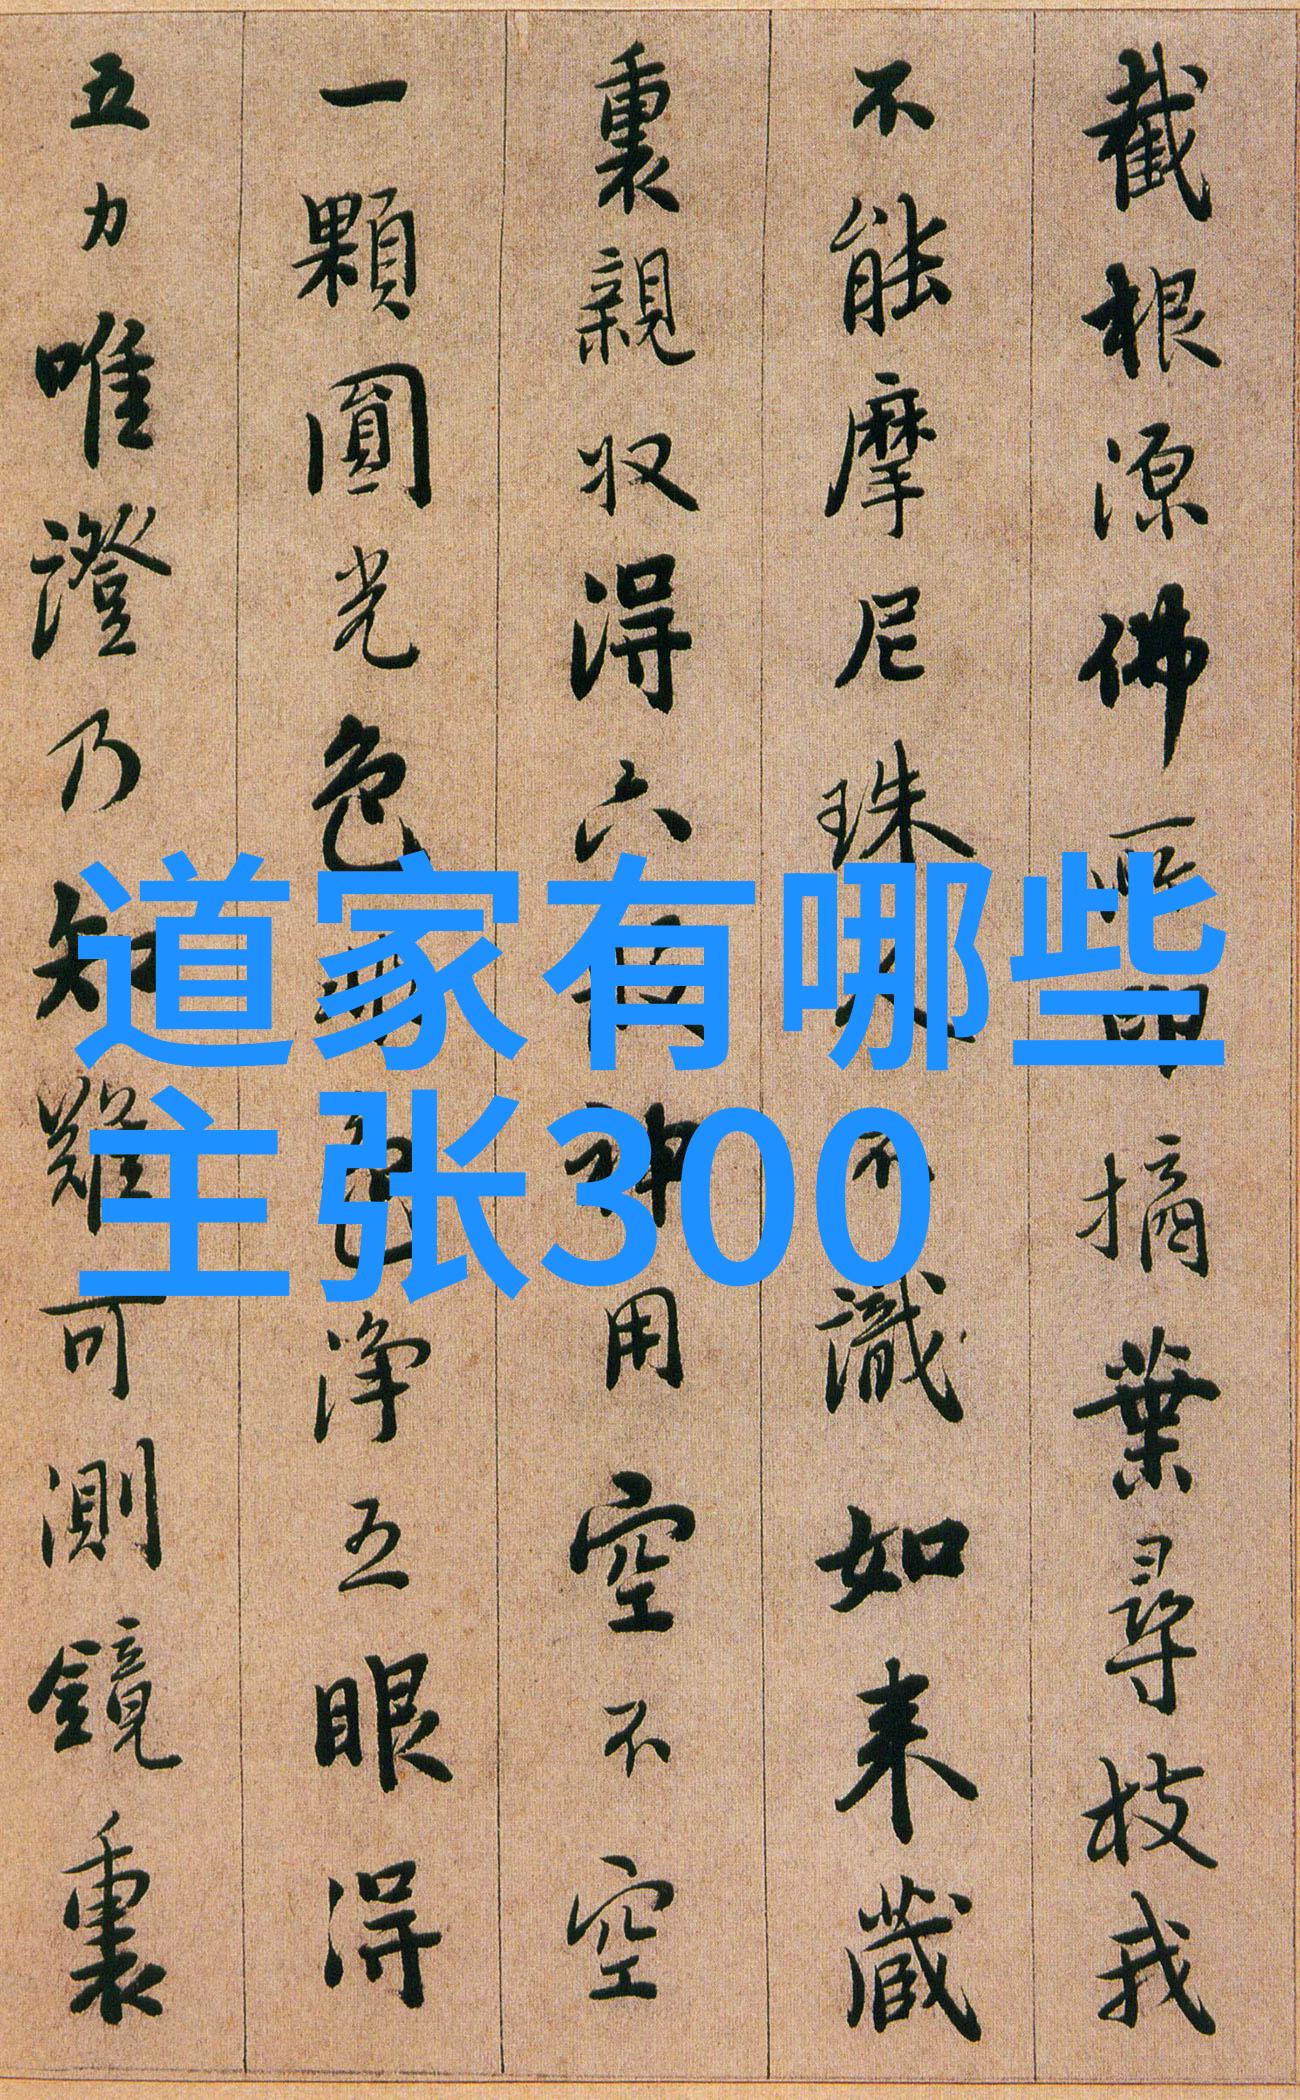 截根源佛所印摘葉尋枝我
不能摩尼珠人不識如来藏
裏親収得六般神用空不空
一顆圓光色非色淨五眼得
五力唯證乃知難可測鏡裏
道家有哪些
主张300